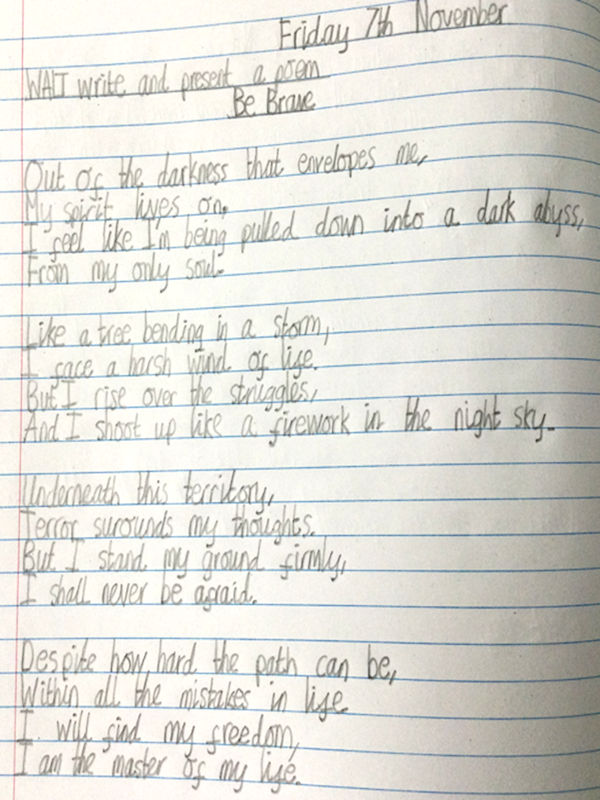 Friday 7th November
WALT write and present a poem
Be Brave
Out of the darkness that envelopes me,
My spirit lives on.
I feel like I'm being pulled down into a dark abyss,
From my only soul.
Like a tree bending in a storm,
I face a harsh wind of life.
But I rise over the struggles,
And I shoot up like a firework in the night sky.
Underneath this territory,
Terror surounds my thoughts.
But I stand my ground firmly,
I shall never be afraid.
Despite how hard the path can be,
Within all the mistakes in life
I will find my freedom,
I am the master of my life.